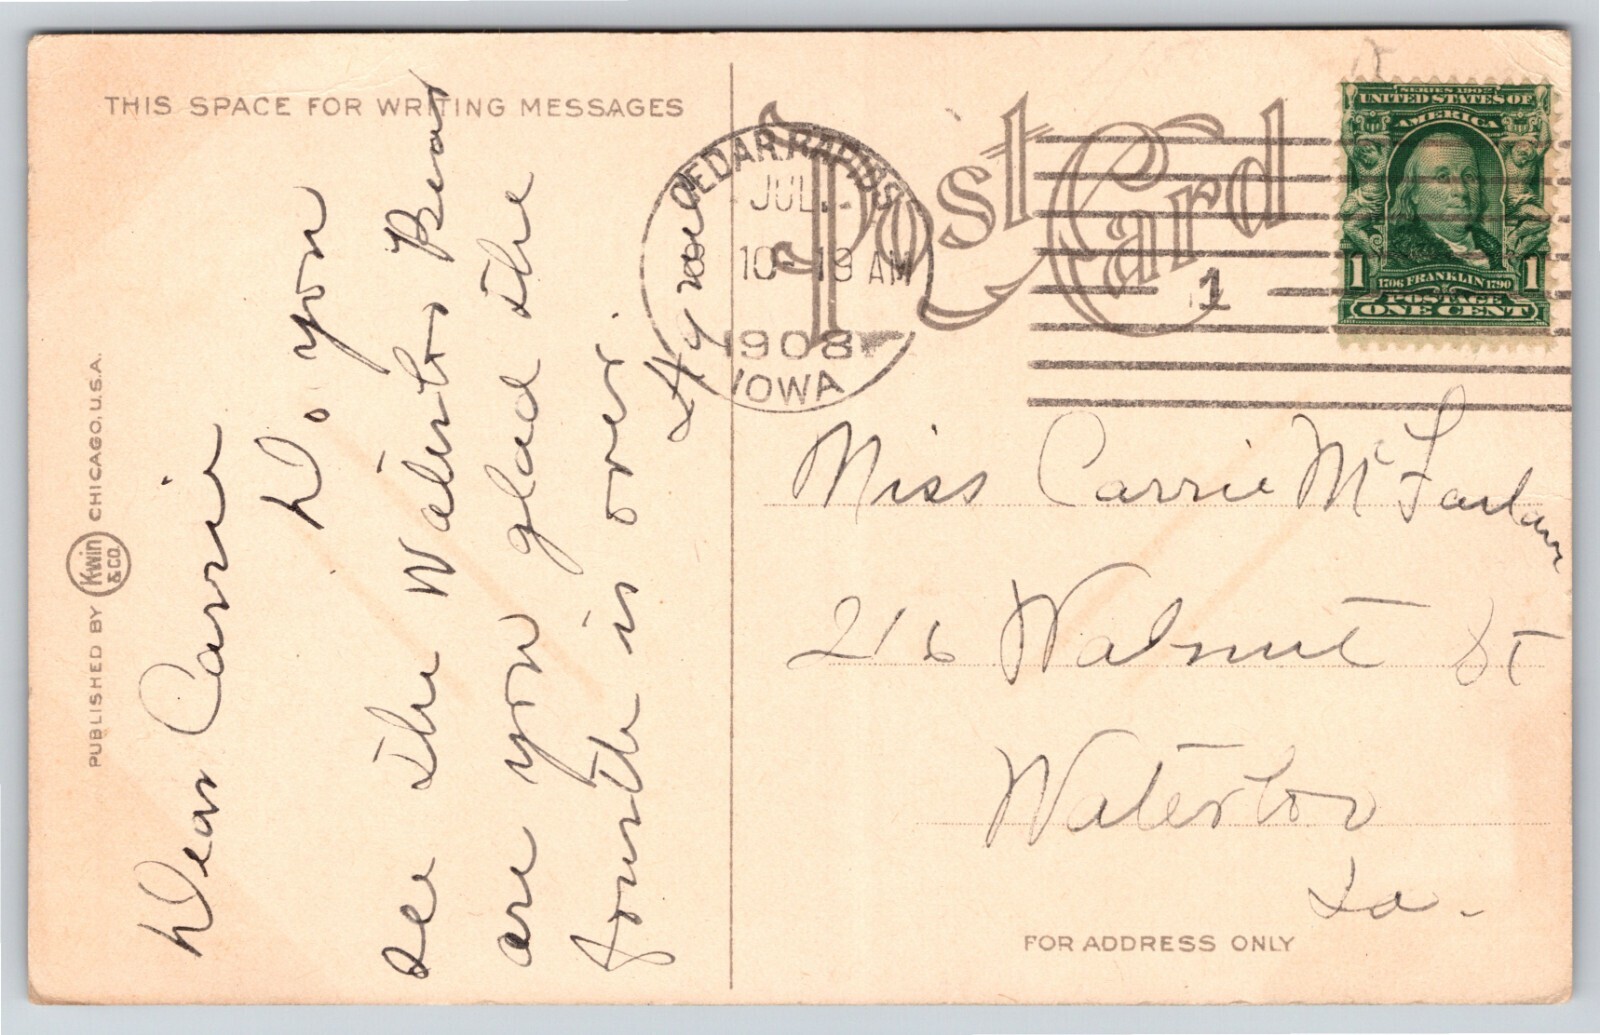 THIS SPACE FOR WRITING MESSAGES
PUBLISHED BY Kwin & CO. CHICAGO, U.S.A.
Dear Carrie
Do you
see the Waterloo Bear
are you glad the
fourth is over.
Post Card
CEDAR RAPIDS
JUL
10
AM
1908
IOWA
1
SERIES 1902
UNITED STATES OF
AMERICA
1706 FRANKLIN 1790
1 POSTAGE 1
ONE CENT
Miss Carrie McFarlane
216 Walnut St
Waterloo
Ia.
FOR ADDRESS ONLY